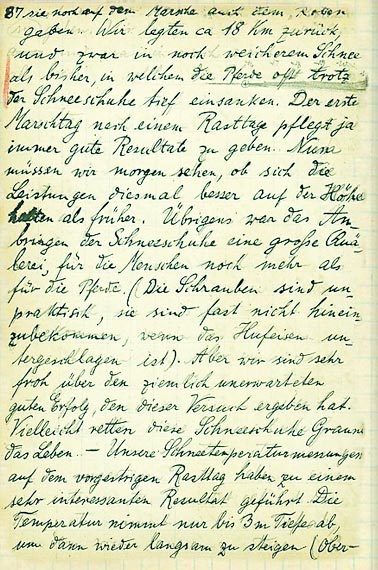 87 sie noch auf dem Marsche auch dem Roben
gaben. Wir legten ca 18 Km zurück,
und zwar in noch weicherem Schnee
als bisher, in welchem die Pferde oft trotz
der Schneeschuhe tief einsanken. Der erste
Marschtag nach einem Rasttage pflegt ja
immer gute Resultate zu geben. Nun
müssen wir morgen sehen, ob sich die
Leistungen diesmal besser auf der Höhe
halten als früher. Übrigens war das An-
bringen der Schneeschuhe eine große Quä-
lerei, für die Menschen noch mehr als
für die Pferde. (Die Schrauben sind un-
praktisch, sie sind fast nicht hinein-
zubekommen, wenn das Hufeisen un-
tergeschlagen ist). Aber wir sind sehr
froh über den ziemlich unerwarteten
guten Erfolg, den dieser Versuch ergeben hat.
Vielleicht retten diese Schneeschuhe Grauni
das Leben. — Unsere Schneetemperaturmessungen
auf dem vorgestrigen Rasttag haben zu einem
sehr interessanten Resultat geführt. Die
Temperatur nimmt nur bis 3m Tiefe ab,
um dann wieder langsam zu steigen (Ober-